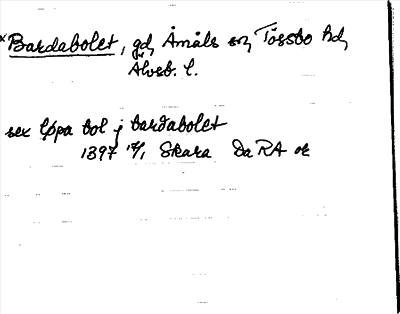 ×Bardabolet, gd, Åmåls sn, Tössbo hd,
Älvsb. l.
sex løpa bol j bardabolet
1397 17/1 Skara DaRA or